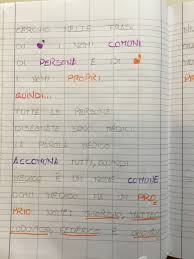 CERCHIO NELLE FRASI
DI I NOMI COMUNI
DI PERSONA E DI
I NOMI PROPRI.
QUINDI...
TUTTE LE PERSONE
DISEGNATE SONO MEDICI
LA PAROLA MEDICO
ACCOMUNA TUTTI, QUINDI
MEDICO È UN NOME COMUNE
OGNI MEDICO HA UN PRO
PRIO NOME: MATTEO
LUDOVICO, FEDERICO E